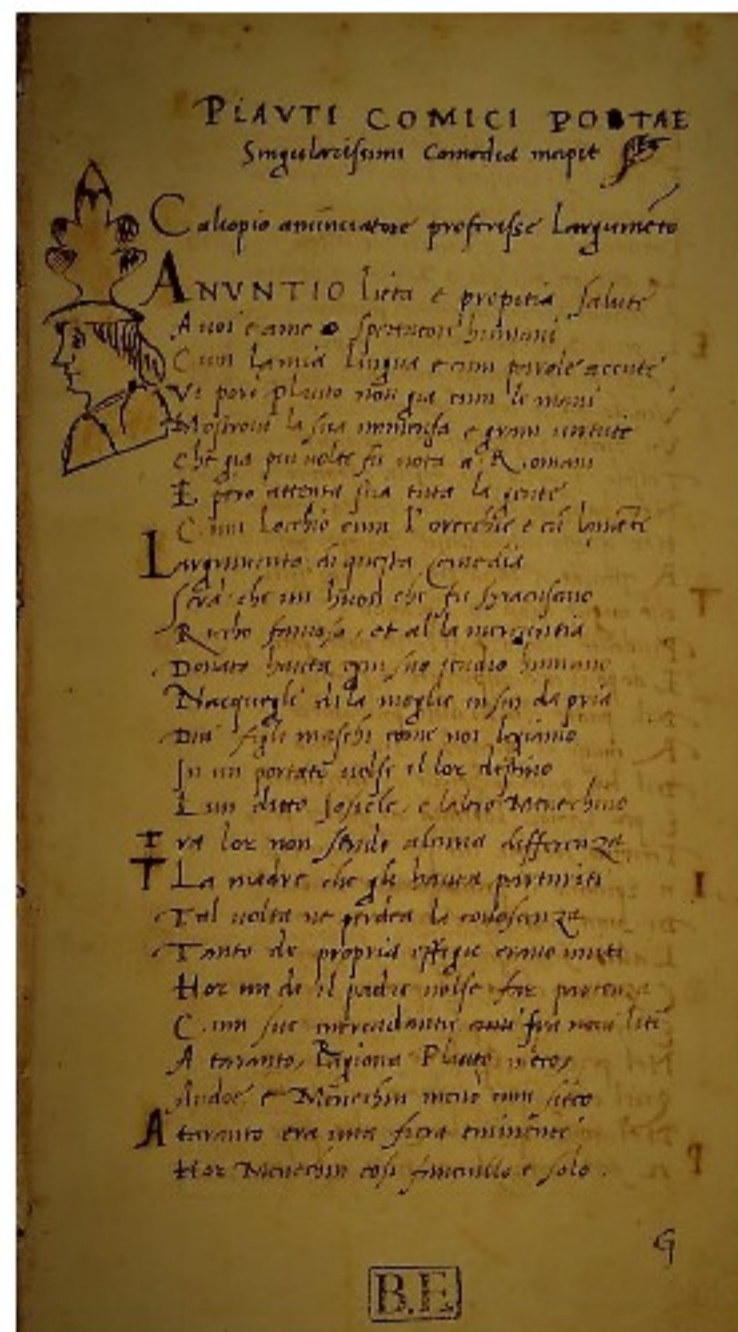 PLAVTI COMICI POETAE
Singularissimi Comedia incipit
Caliopio anunciatore proferisse Largumēto
ANVNTIO lieta e propitia salute
A uoi e ame o spectatori humani
Cum la mia lingua e cum parole accute
Vi porò Plauto non gia cum le mani
Mostroui la sua immensa e gram uirtute
Che gia piu uolte fu nota a Romani
E pero attenta sia tuta la gente
Cum Lochio cum l'orecchie e cū lamēte
Largumento di questa comedia
Serà che un huom che fu syracusano
Richo famoso, et al la mercantia
Donato hauea ogni suo studio humano
Nacquegli di la moglie in sin da pria
Dui figli maschi come noi legiamo
In un portato uolse il lor destino
L un ditto Josicle, e laltro Menechino
Tra lor non sendo alcuna differenza
La madre che gli hauea parturiti
Tal uolta ne perdea la conoscenza
Tanto de propria effigie erano uniti
Hor un di il padre uolse far partenza
Cum sue mercadantie
A taranto, Ragiona Plauto
Andoe e Menechin menò cum seco
A taranto era una fiera eminente
Hor Menechin cosi fanciullo e solo.
G
B.E.